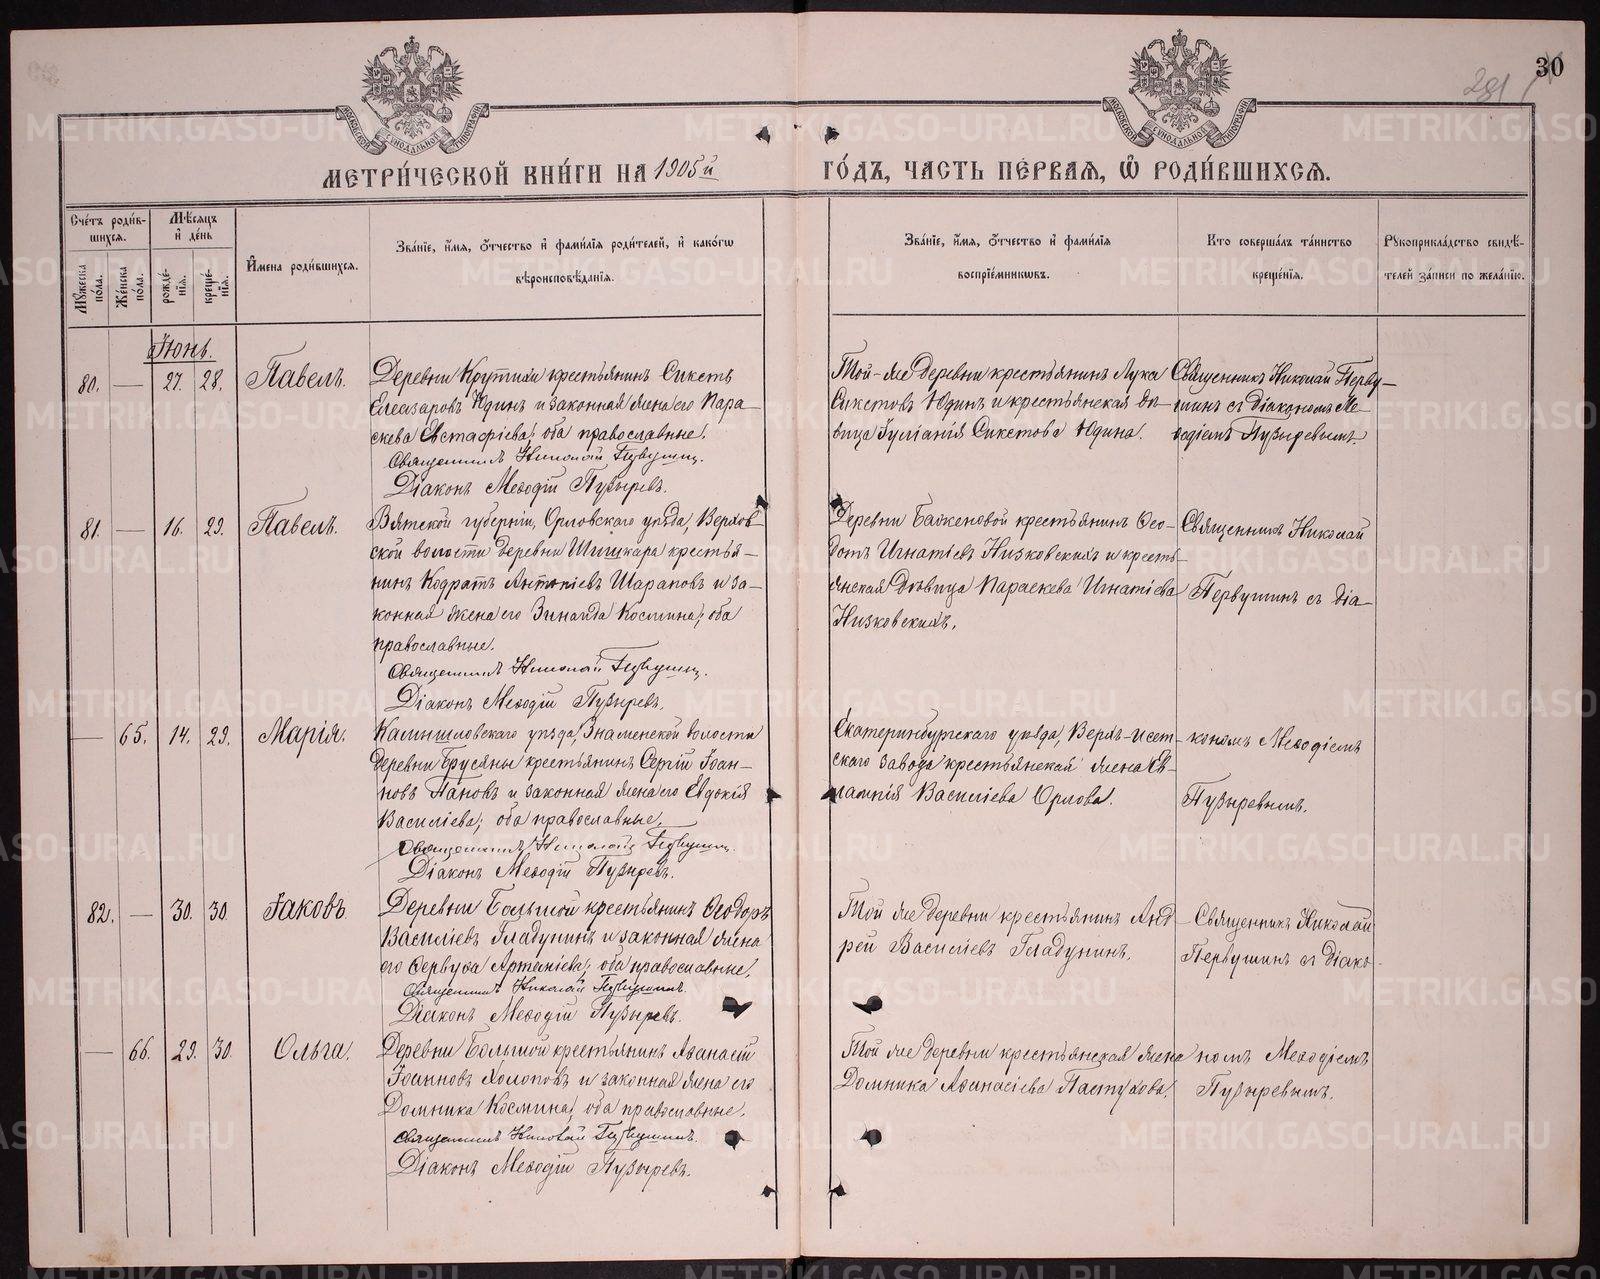 30
281
МЕТРИ́ЧЕСКОЙ КНИ́ГИ НА 1905й ГО́ДЪ, ЧАСТЬ ПЕ́РВАѦ, Ѽ РОДИ́ВШИХСѦ.
Сче́тъ роди́в-
шихсѧ.
Мѣ́сѧцъ
и҆ де́нь
Мꙋ́жеска по́ла.
Же́нска по́ла.
рожде́-
нїѧ.
креще́-
нїѧ.
И҆мена роди́вшихсѧ.
Зва́нїе, и҆́мѧ, ѻ҆́тчество и҆ фами́лїѧ роди́телей, и҆ како́гѡ
вѣроисповѣ́данїѧ.
Зва́нїе, и҆́мѧ, ѻ҆́тчество и҆ фами́лїѧ
воспрїе́мникѡвъ.
Кто соверша́лъ та́инство
креще́нїѧ.
Рꙋкоприкла́дство свидѣ́-
телей за́писи по жела́нїю.
Іюнь.
80. — 27. 28. Павелъ.
Деревни Крутихи крестьянинъ Сикстъ
Елеазаровъ Юдинъ и законная жена его Пара-
скева Евстафіева, оба православные.
Священникъ Николай Первушинъ.
Діаконъ Меѳодій Пузыревъ.
Той-же деревни крестьянинъ Лука
Сикстовъ Юдинъ и крестьянская дѣ-
вица Іуліанія Сикстова Юдина.
Священникъ Николай Перву-
шинъ съ діакономъ Ме-
ѳодіемъ Пузыревымъ.
81. — 16. 29. Павелъ.
Вятской губерніи, Орловскаго уѣзда, Верхов-
ской волости деревни крестья-
нинъ Кодратъ Антоніевъ Шараповъ и за-
конная жена его Зинаида Космина, оба
православные.
Священникъ Николай Первушинъ.
Діаконъ Меѳодій Пузыревъ.
Деревни Баженовой крестьянинъ Ѳео-
дотъ Игнатіевъ Низковскихъ и кресть-
янская дѣвица Параскева Игнатіева
Низковскихъ.
Священникъ Николай
Первушинъ съ діа-
— 65. 14. 29. Марія.
Камышловскаго уѣзда, Знаменской волости
деревни Брусяны крестьянинъ Сергій Іоан-
новъ Пановъ и законная жена его Евдокія
Василіева; оба православные.
Священникъ Николай Первушинъ.
Діаконъ Меѳодій Пузыревъ.
Екатеринбургскаго уѣзда, Верхъ-Исет-
скаго завода крестьянская жена Ев-
лампія Василіева Орлова.
кономъ Меѳодіемъ
Пузыревымъ.
82. — 30. 30. Іаковъ
Деревни Большой крестьянинъ Ѳеодоръ
Василіевъ Гладунинъ и законная жена
его Ѳервуѳа Артеміева, оба православные.
Священникъ Николай Первушинъ.
Діаконъ Меѳодій Пузыревъ.
Той же деревни крестьянинъ Анд
рей Василіевъ Гладунинъ.
Священникъ Николай
Первушинъ съ діако-
— 66. 29. 30. Ольга.
Деревни Большой крестьянинъ Аѳанасій
Іоанновъ Холоповъ и законная жена его
Домника Космина, оба православные.
Священникъ Николай Первушинъ.
Діаконъ Меѳодій Пузыревъ.
Той же деревни крестьянская жена
Домника Аѳанасіева Пастухова.
номъ Меѳодіемъ
Пузыревымъ.